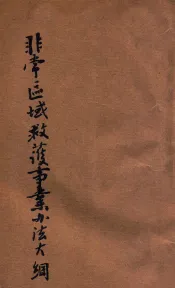 非常区域救護事業办法大綱